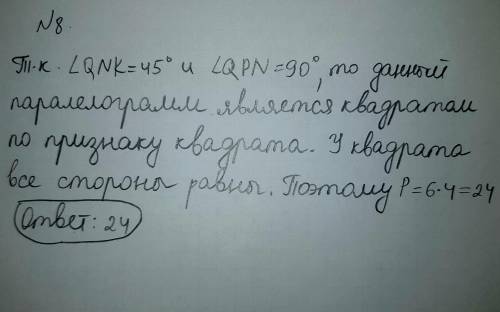 №8.
Т.к. ∠QNK=45° и ∠QPN=90°, то данный
паралелограмм является квадратом
по признаку квадрата. У квадрата
все стороны равны. Поэтому P=6·4=24
Ответ: 24